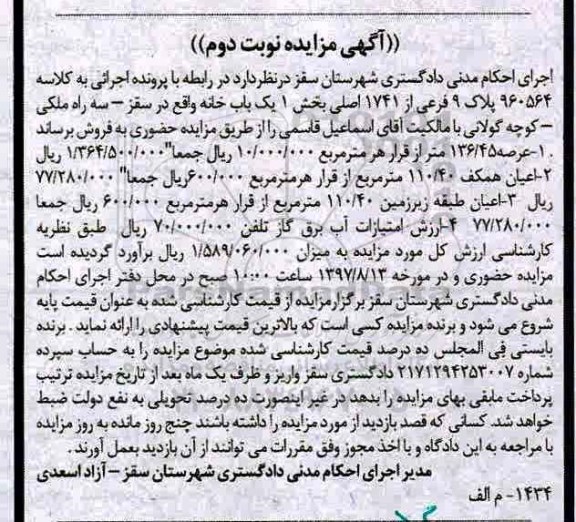 ((آگهی مزایده نوبت دوم))
اجرای احکام مدنی دادگستری شهرستان سقز در نظر دارد در رابطه با پرونده اجرائی به کلاسه
۹۶۰۵۶۴ پلاک ۹ فرعی از ۱۷۴۱ اصلی بخش ۱ یک باب خانه واقع در سقز – سه راه ملکی
– کوچه گولانی با مالکیت آقای اسماعیل قاسمی را از طریق مزایده حضوری به فروش برساند
. ۱-عرصه۱۳۶/۴۵ متر از قرار هر مترمربع ۱۰/۰۰۰/۰۰۰ ریال جمعا"۱/۳۶۴/۵۰۰/۰۰۰ ریال
۲-اعیان همکف ۱۱۰/۴۰ مترمربع از قرار هرمترمربع ۶۰۰/۰۰۰ریال جمعا" ۷۷/۲۸۰/۰۰۰
ریال ۳-اعیان طبقه زیرزمین ۱۱۰/۴۰ مترمربع از قرار هرمترمربع ۶۰۰/۰۰۰ ریال جمعا
۷۷/۲۸۰/۰۰۰ ۴-ارزش امتیازات آب برق گاز تلفن ۷۰/۰۰۰/۰۰۰ ریال طبق نظریه
کارشناسی ارزش کل مورد مزایده به میزان ۱/۵۸۹/۰۶۰/۰۰۰ ریال برآورد گردیده است
مزایده حضوری و در مورخه ۱۳۹۷/۸/۱۳ ساعت ۱۰:۰۰ صبح در محل دفتر اجرای احکام
مدنی دادگستری شهرستان سقز برگزار مزایده از قیمت کارشناسی شده به عنوان قیمت پایه
شروع می شود و برنده مزایده کسی است که بالاترین قیمت پیشنهادی را ارائه نماید . برنده
بایستی فی المجلس ده درصد قیمت کارشناسی شده موضوع مزایده را به حساب سپرده
شماره ۲۱۷۱۲۹۴۲۵۳۰۰۷ دادگستری سقز واریز و ظرف یک ماه بعد از تاریخ مزایده ترتیب
پرداخت مابقی بهای مزایده را بدهد در غیر اینصورت ده درصد تحویلی به نفع دولت ضبط
خواهد شد. کسانی که قصد بازدید از مورد مزایده را داشته باشند چنج روز مانده به روز مزایده
با مراجعه به این دادگاه و با اخذ مجوز وفق مقررات می توانند از آن بازدید بعمل آورند .
مدیر اجرای احکام مدنی دادگستری شهرستان سقز – آزاد اسعدی
۱۴۳۴- م الف